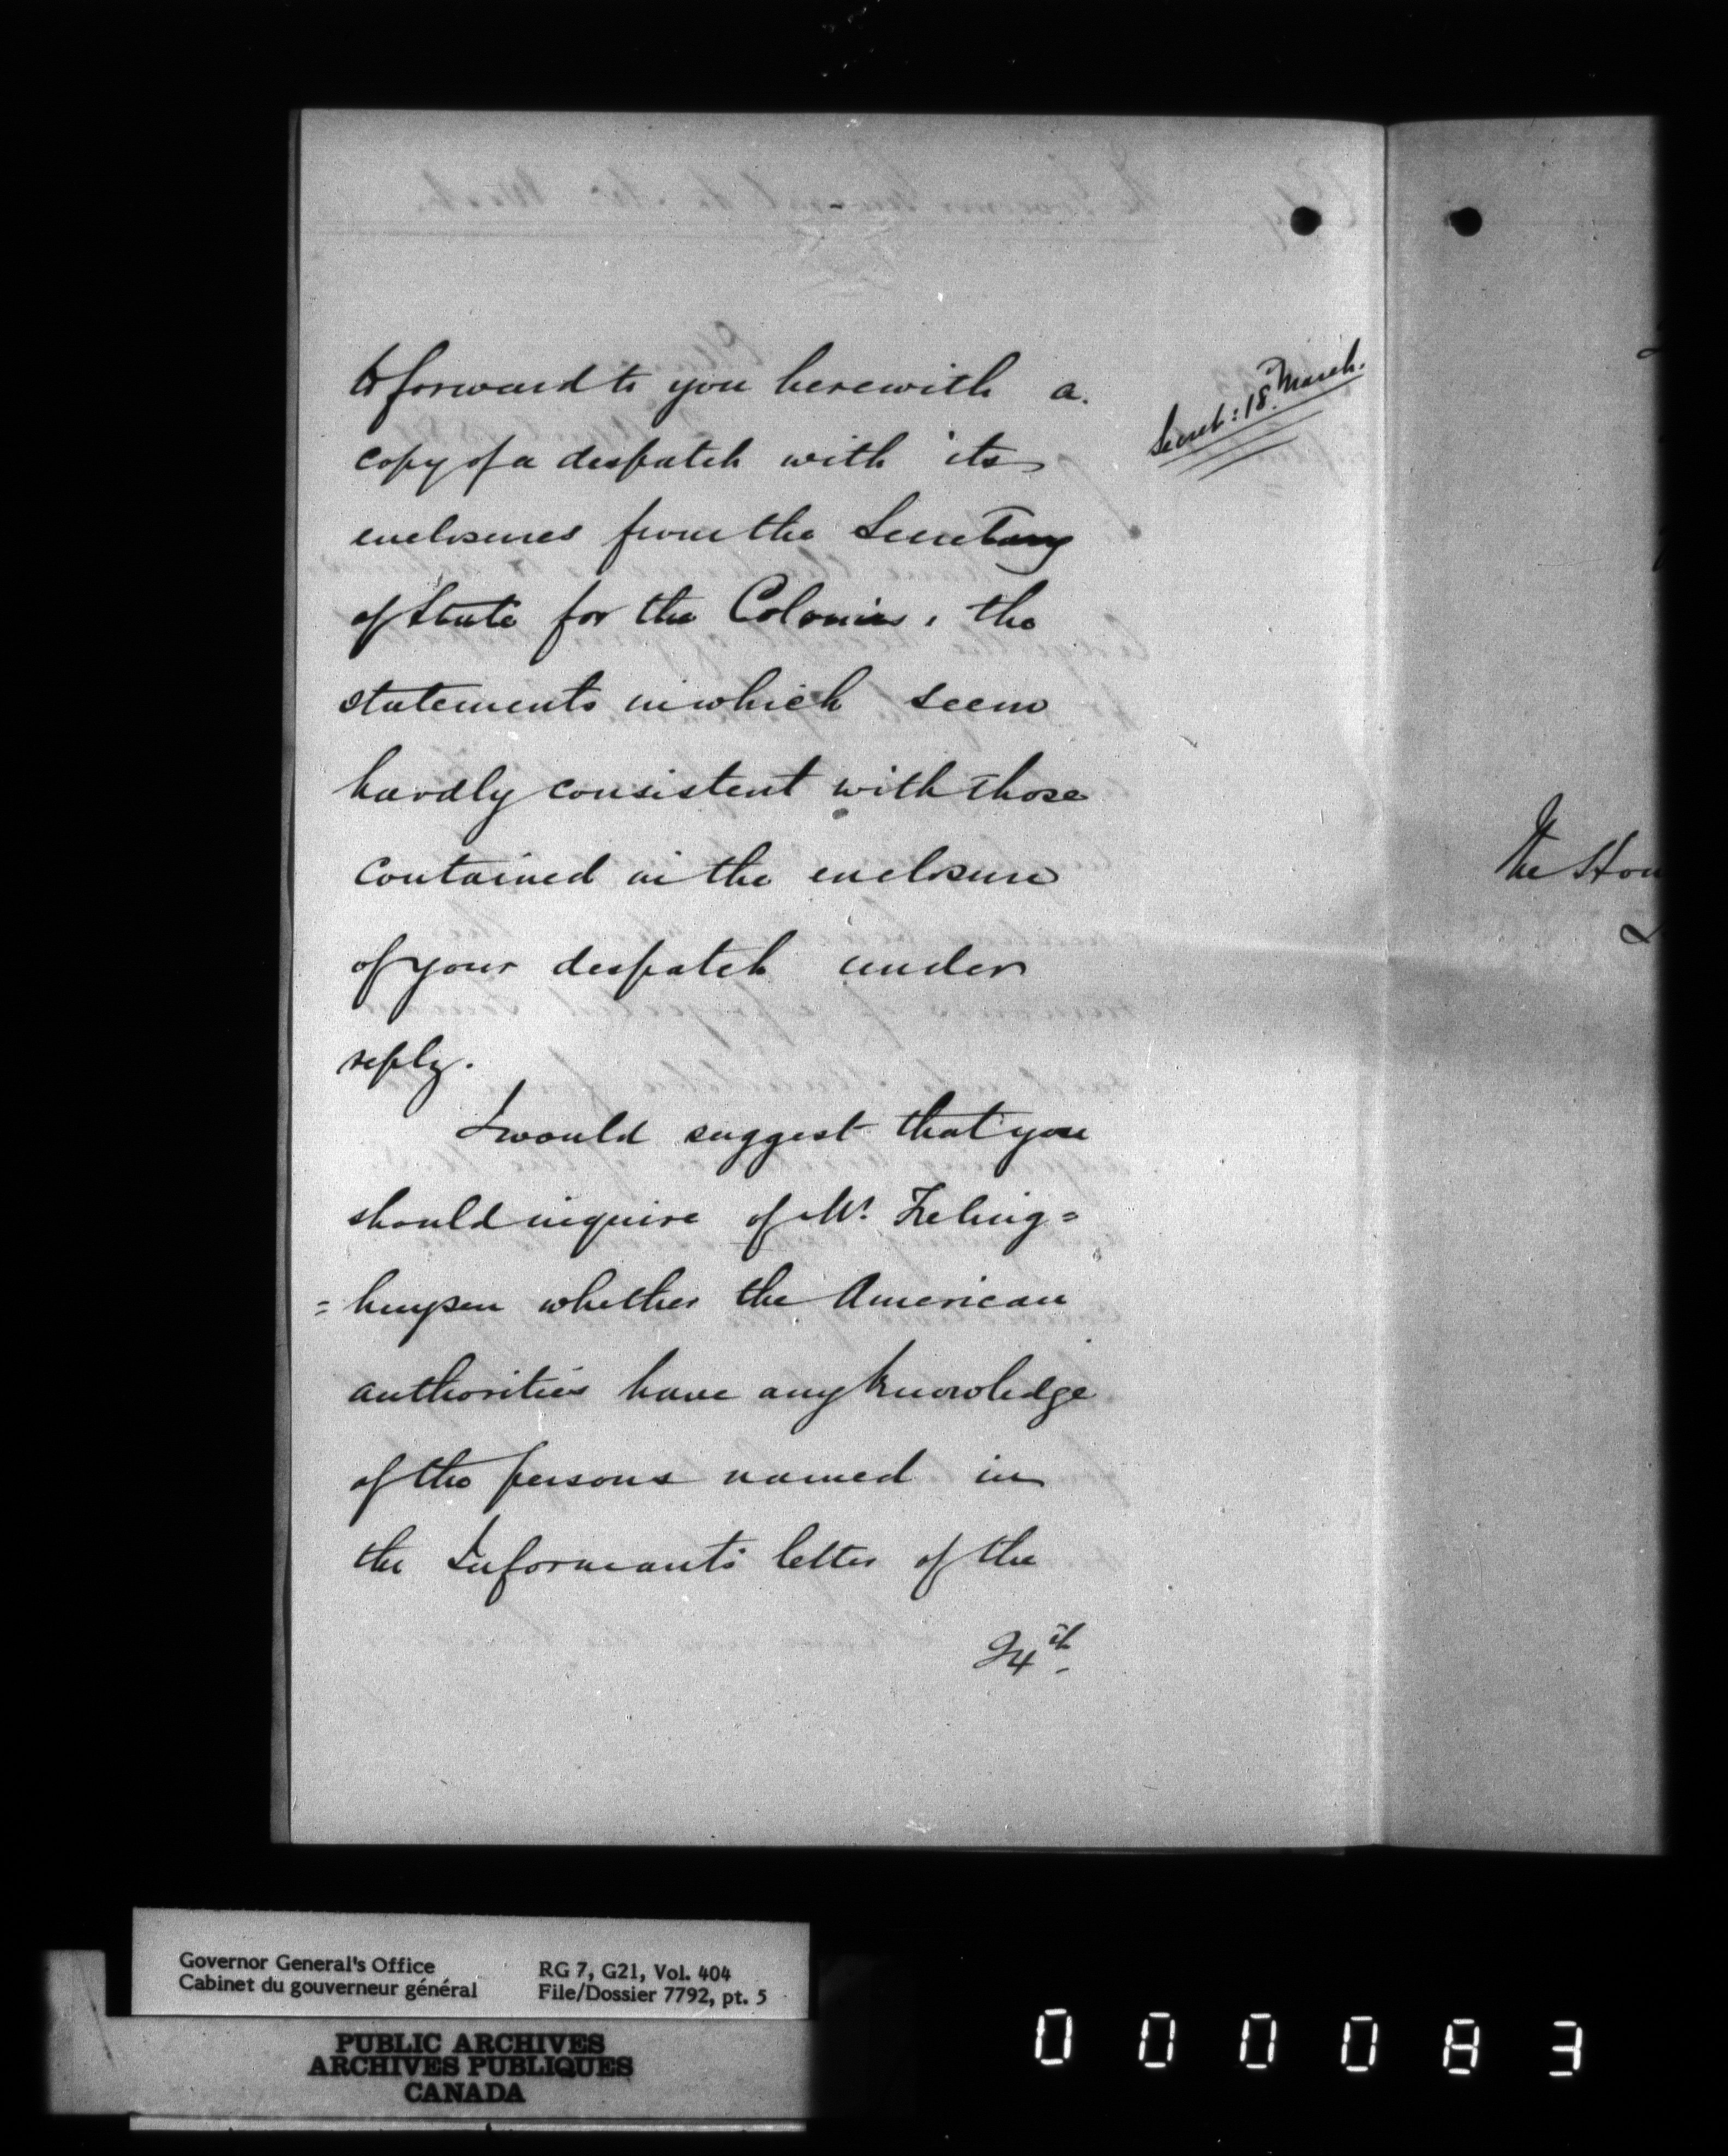 to forward to you herewith a
Secret: 18 March.
copy of a despatch with its
enclosures from the Secretary
of State for the Colonies, the
statements in which seem
hardly consistent with those
contained in the enclosure
of your despatch under
reply.
I would suggest that you
should inquire of Mr. Freling=
=huysen whether the American
authorities have any knowledge
of the persons named in
the Informant's letter of the
24th.
The Hon
Governor General's Office
Cabinet du gouverneur général
RG 7, G21, Vol. 404
File/Dossier 7792, pt. 5
PUBLIC ARCHIVES
ARCHIVES PUBLIQUES
CANADA
000083